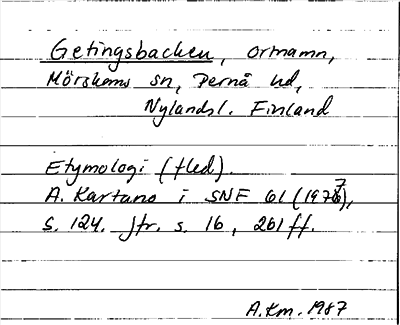 Getingsbacken, ortnamn,
Mörskoms sn, Pernå hd,
Nylandsl. Finland
Etymologi (fled).
A. Kartano i SNF 61 (1977),
s. 124. Jfr. s. 16, 261 ff.
A.Km. 1987